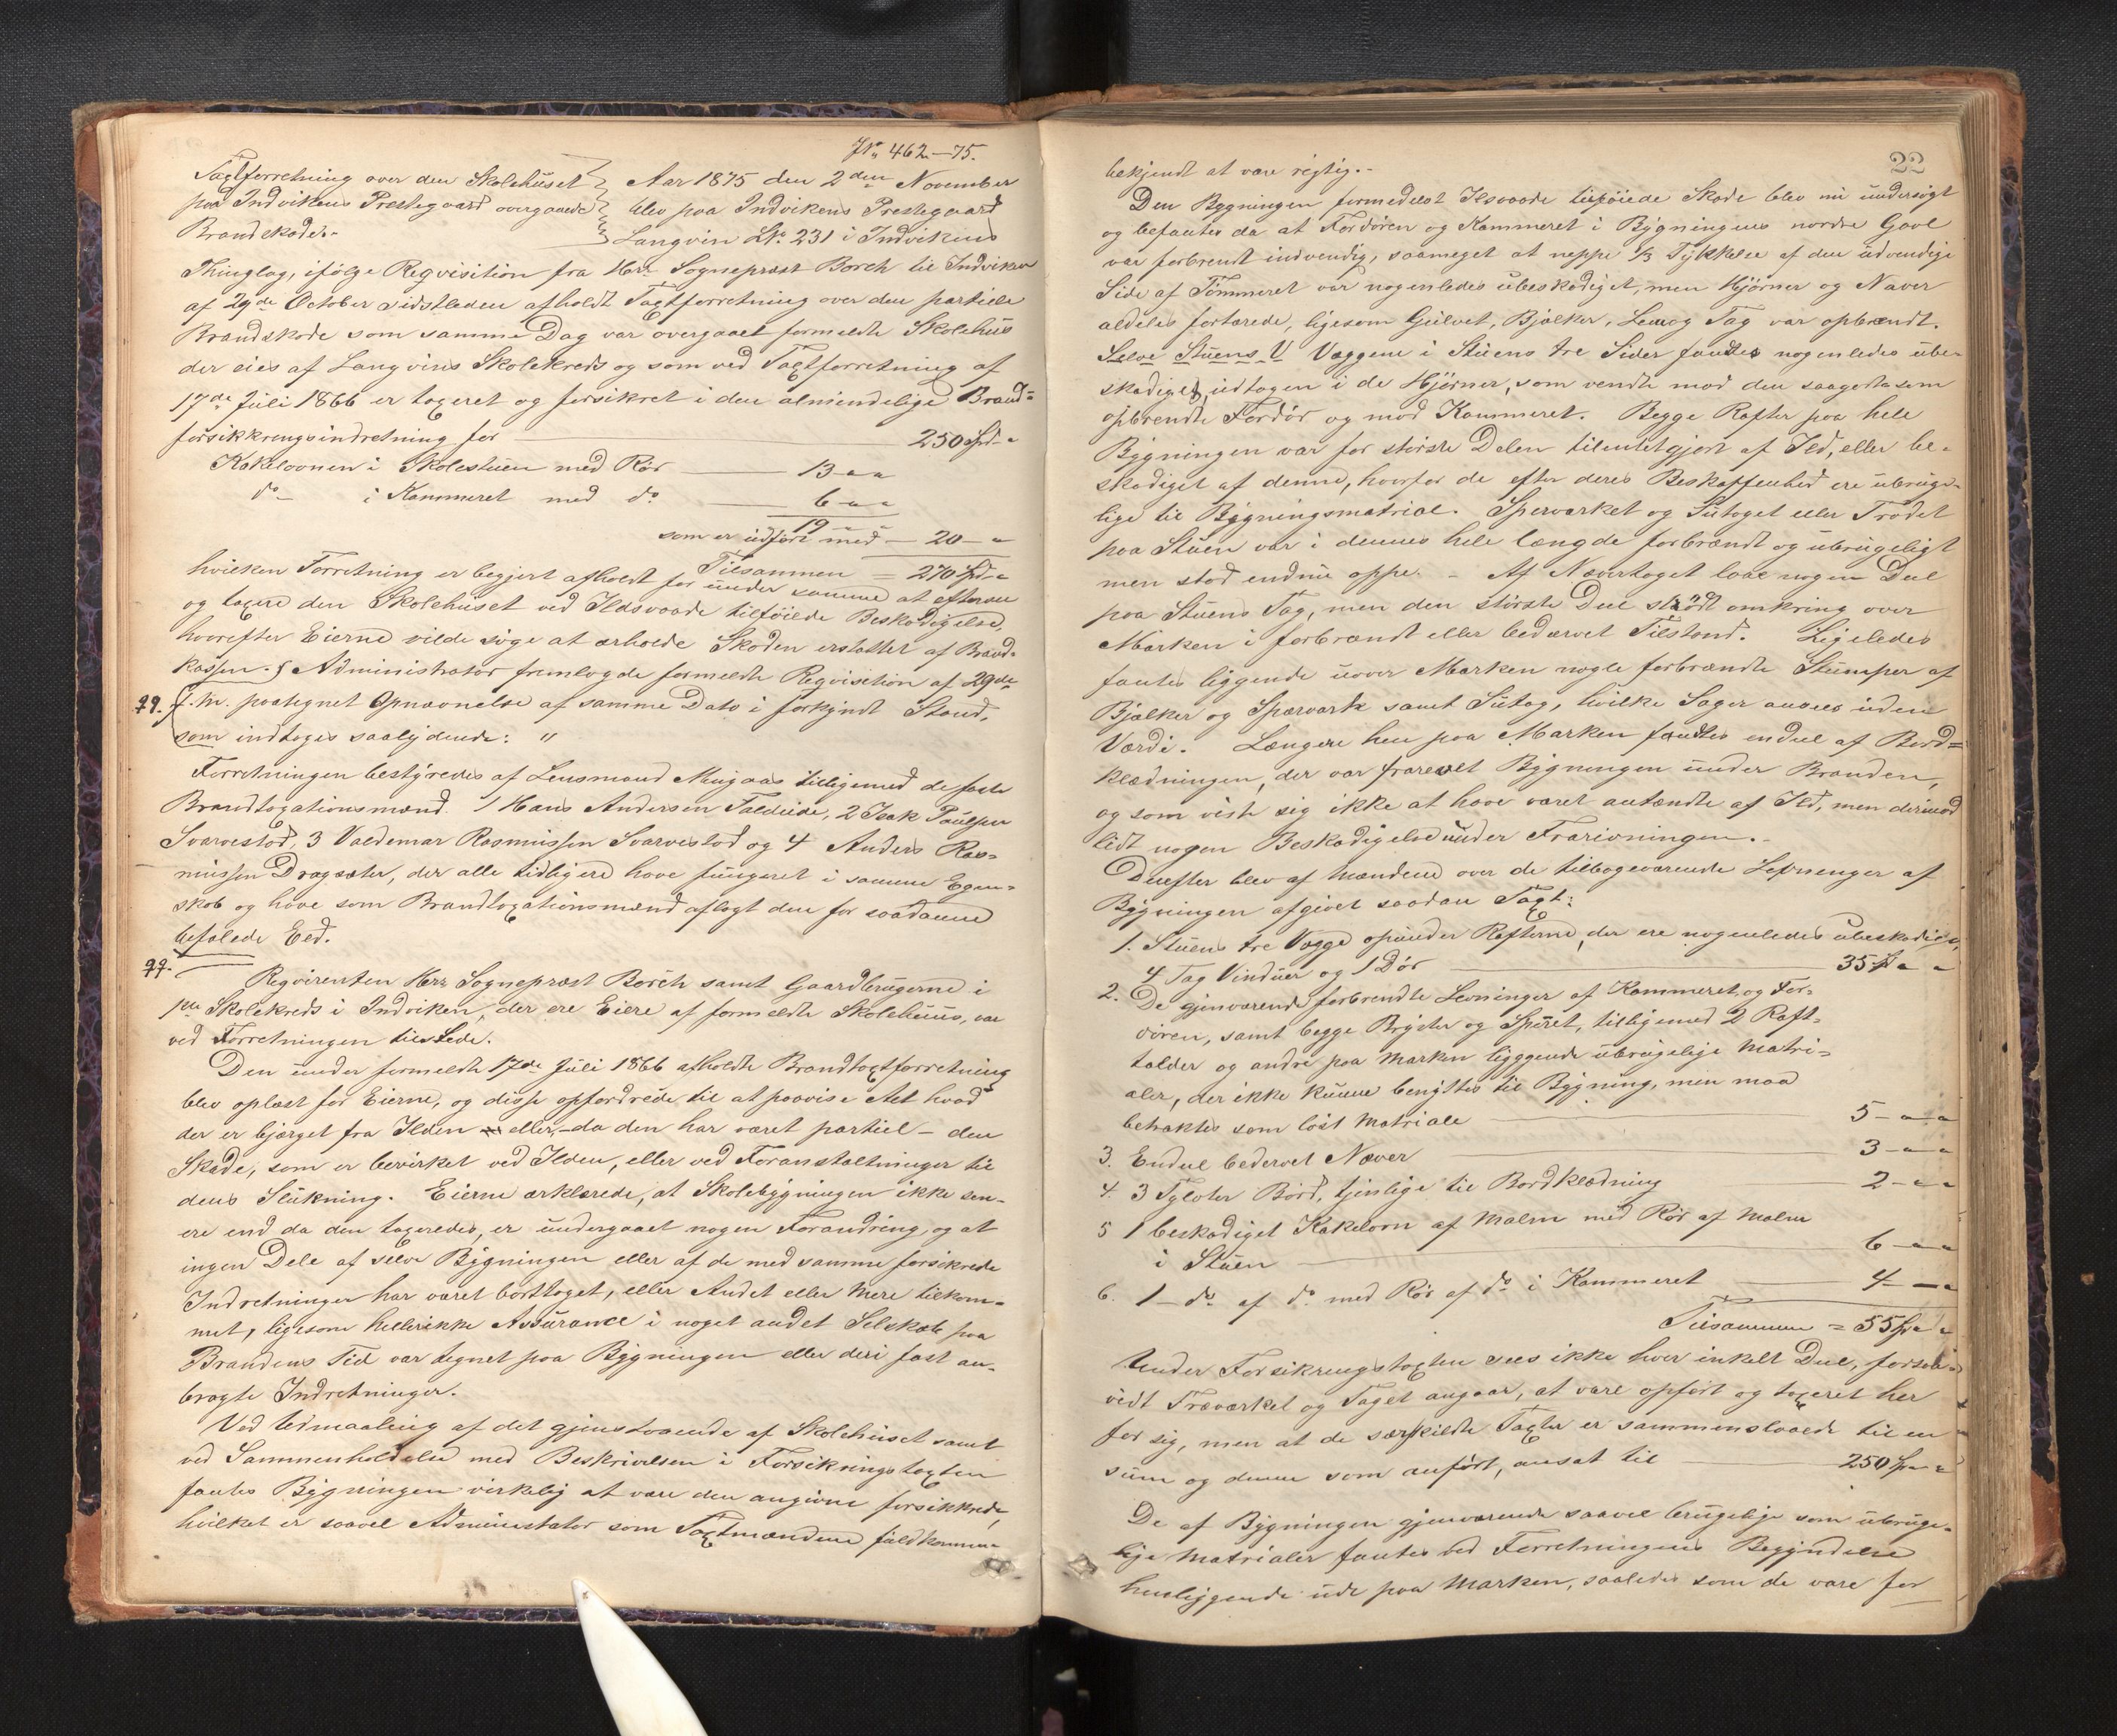 No 462-75.
Taxtforretning over den Skolehuset
paa Indvikens Prestegaard overgaaede
Brandskade.-
Aar 1875 den 2den November
blev paa Indvikens Prestegaard
Langvin Lr. 231 i Indvikens
Thinglag, ifølge Reqvisition fra Herr Sogneprest Borch til Indviken
af 29de October sidstleden afholdt Taxtforretning over den partielle
Brandskade som samme Dag var overgaaet formeldte Skolehus
der eies af Langvins Skolekreds og som ved Taxtforretning af
17de Juli 1866 er taxeret og forsikret i den almindelige Brand=
forsikkrengsindretning for 250 Spd "
Kakelovnen i Skolestuen med Rør 13 " "
do i Kammeret med do 6 " "
19 " "
som er udført med 20 - "
Tilsammen = 270 Spd "
hvilken Forretning er begjert afholdt for under samme at efterse
og taxere den Skolehuset ved Ildsvaade tilføiede Beskadigelse,
hvorefter Eierne vilde søge at erholde Skaden erstattet af Brand=
kassen. Administrator fremlagde formeldte Reqvisition af 29de
f. M. paategnet Opnævnelse af samme Dato i forkyndt Stand,
som indtages saalydende: "
Forretningen bestyredes af Lensmand Muigaas tilligemed de faste
Brandtaxationsmænd 1 Hans Andersen Faldeide, 2 Isak Paulsen
Svarvestød, 3 Valdemar Rasmussen Svarvestød og 4 Anders Ras=
mussen Dragsæter, der alle tidligere have fungeret i samme Egen=
skab og have som Brandtaxationsmænd aflagt den for saadanne
befalede Eed.
Reqvirenten Herr Sogneprest Borch samt Gaardbrugerne i
Skolekreds i Indviken, der ere Eiere af formeldte Skolehuus, var
ved Forretningen tilstede.
Den under formeldte 17de Juli 1866 afholdte Brandtaxtforretning
blev oplæst for Eierne, og disse opfordrede til at paavise Alt hvad
der er bjærget fra Ilden eller, - da den har været partiel - den
Skade, som er bevirket ved Ilden, eller ved Foranstaltninger til
dens Slukning. Eierne erklærede, at Skolebygningen ikke sen=
ere end da den taxeredes, er undergaaet nogen Forandring, og at
ingen Dele af selve Bygningen eller af de med samme forsikrede
Indretninger har været borttaget, eller Andet eller Mere tilkom=
met, ligesom hellerikke Assurance i noget andet Selskab paa
Brandens Tid var tegnet paa Bygningen eller deri fast an=
bragte Indretninger.
Ved Udmaaling af det gjenstaaende af Skolehuset samt
ved Sammenholdelse med Beskrivelsen i Forsikringstaxten
fantes Bygningen virkelig at være den angivne forsikkrede,
hvilket er saavel Administator som Taxtmændene fuldkommen
22
bekjendt at være rigtig.-
Den Bygningen formedelst Ilsvaade tilføiede Skade blev nu undersøgt
og befantes da at Fordøren og Kammeret i Bygningens nordre Gavl
var forbrendt indvendig, saameget at neppe 1/3 Tykkelse af den udvendige
Side af Tømmeret var nogenledes ubeskadiget, men Hjørner og Naver
aldeles fortærede, ligesom Gulvet, Bjælker, Lem og Tag var opbrendt.
Selve Stuens V Væggene i Stuens tre Sider fantes nogenledes ube=
skadiget, udtagen i de Hjørner, som vendte mod den saagodtsom
opbrendte Fordør og mod Kammeret. Begge Rafter paa hele
Bygningen var for største Delen tilentetgjort af Ild, eller be=
skadiget af denne, hvorfor de efter deres Beskaffenhed ere ubruge=
lige til Bygningsmatrial. Sperværket og Sutaget eller Trodet
paa Stuen var i dennes hele længde forbrændt og ubrugeligt
men stod endnu oppe. - Af Nævertaget laae nogen Deel
paa Stuens Tag, men den største Deel strødt omkring over
Marken i forbrændt eller bedærvet Tilstand. Ligeledes
fantes liggende uover Marken nogle forbrændte Stumper af
Bjælker og Spærværk samt Sutag, hvilke Sager ansees uden
Værdi. Længere hen paa Marken fantes endeel af Bord=
klædningen, der var frarevet Bygningen under Branden,
og som viste sig ikke at have været antændte af Ild, men derimod
lidt nogen Beskadigelse under Frarivningen.-
Derefter blev af Mændene over de tilbageværende Levninger af
Bygningen afgivet saadan Taxt:
1. Stuens tre Vægge opunder Rafterne, der ere nogenledes ubeskadiget,
4 Fag Vinduer og 1 Dør 35 Sp " "
2. De gjenværende forbrendte Levninger af Kammeret og For=
døren, samt begge Bryster og Speret, tilligemed 2 Raft=
talder og andre paa Marken ligggende ubrugelige Matri=
aler, der ikke kunne benyttes til Bygning, men maa
betraktes som løst Matriale 5 - " "
3. Endeel bedervet Næver 3 - " "
4. 3 Tylvter Bord, tjenlige til Bordklædning 2 - " "
5 1 beskadiget Kakelovn af Malm med Rør af Malm
i Stuen 6 - " "
6. 1 - do af do med Rør af do i Kammeret 4 - "
Tilsammen = 55 Sp " "
Under Forsikrengstaxten sees ikke hver enkelt Deel, forsaa=
vidt Træværket og Taget angaar, at være opført og taxeret her
for sig, men at de særskildte Taxter er sammenslaaede til en
Sum og denne som anført, ansat til 250 Sp " "
De af Bygningen gjenværende saavel brugelige som ubruge=
lige Matrialer fantes ved Forretningens Begyndelse
henliggende ude paa Marken, saaledes som de vare for